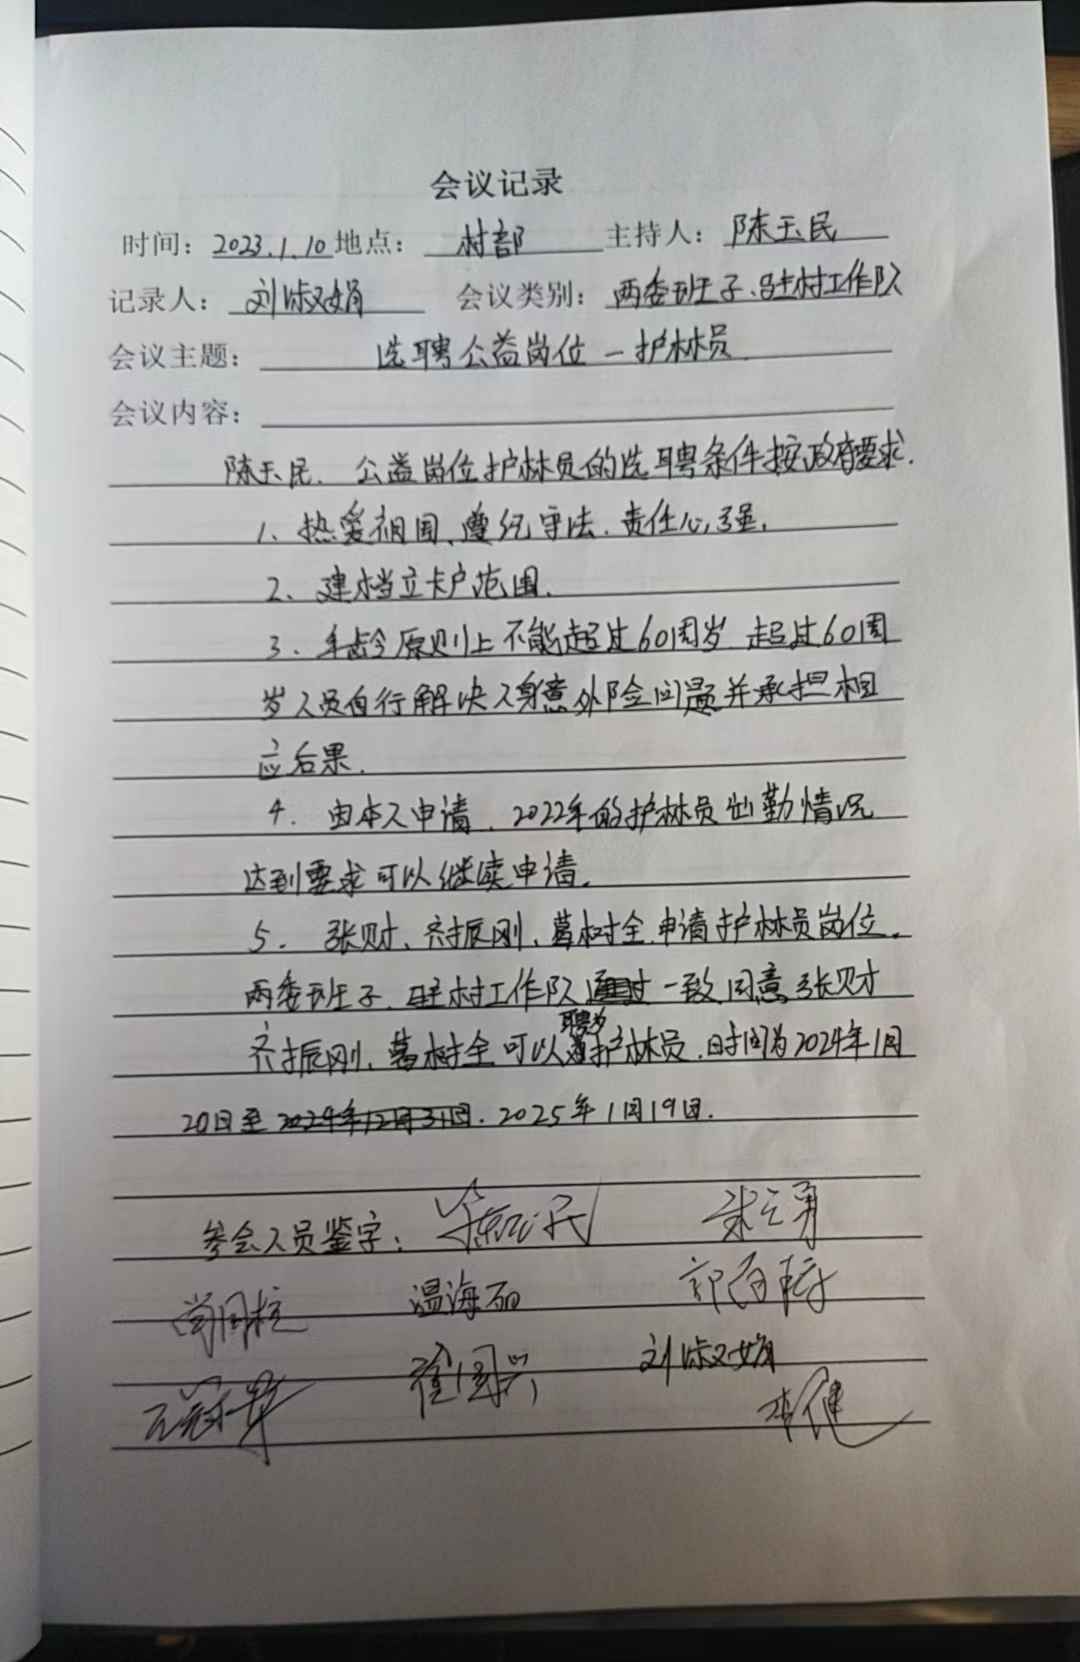 会议记录
时间：2023.1.10 地点：村部 主持人：陈玉民
记录人：刘淑娟 会议类别：两委班子、驻村工作队
会议主题：选聘公益岗位一护林员
会议内容：
陈玉民、公益岗位护林员的选聘条件按政府要求.
1、热爱祖国、遵纪守法、责任心强,
2、建档立卡户范围.
3、年龄原则上不能超过60周岁 超过60周
岁人员自行解决人身意外险问题并承担相
应后果.
4、由本人申请、2022年的护林员出勤情况
达到要求可以继续申请。
5、张财、齐振刚、葛树全申请护林员岗位。
两委班子、驻村工作队通过一致同意张财
齐振刚、葛树全可以聘为护林员.时间为2024年1月
20日至2024年12月31日.2025年1月19日.
参会人员鉴字：
温海石
崔国兴 刘淑娟
李健